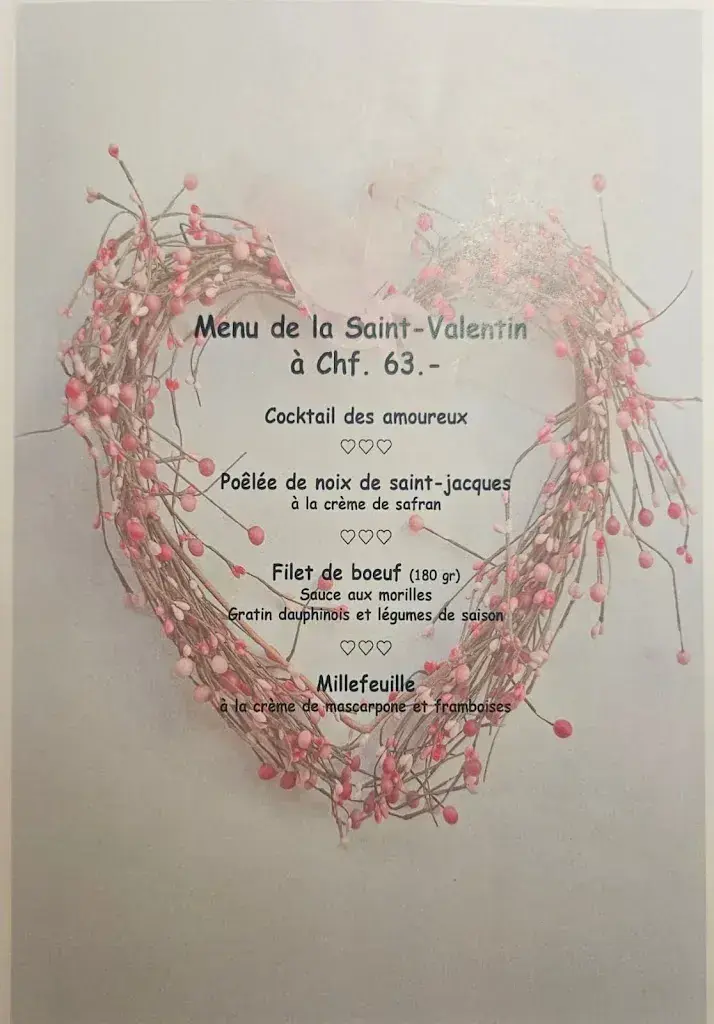 Menu de la Saint-Valentin
à Chf. 63.-
Cocktail des amoureux
♡♡♡
Poêlée de noix de saint-jacques
à la crème de safran
♡♡♡
Filet de boeuf (180 gr)
Sauce aux morilles
Gratin dauphinois et légumes de saison
♡♡♡
Millefeuille
à la crème de mascarpone et framboises